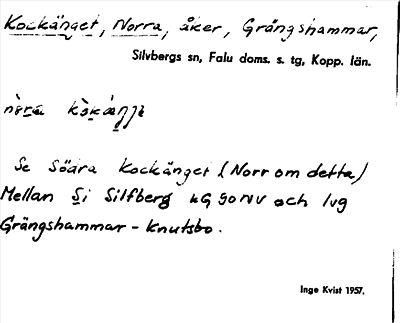 Kockänget, Norra, åker, Grängshammar,
Silvbergs sn, Falu doms. s. tg, Kopp. län.
Se Södra Kockänget (Norr om detta)
Mellan Si Silfberg och lvg
Grängshammar - Knutsbo.
Inge Kvist 1957.